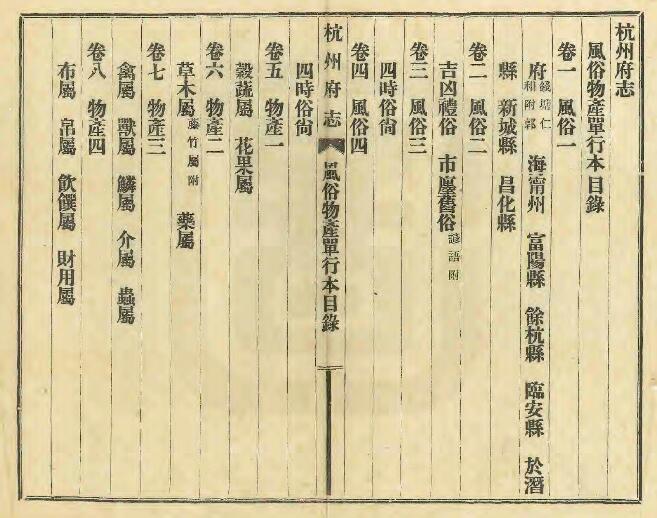 杭州府志
風俗物產單行本目錄
卷一 風俗一
府錢塘仁和附郭 海甯州 富陽縣 餘杭縣 臨安縣 於潛
縣 新城縣 昌化縣
卷二 風俗二
吉凶禮俗 市廛舊俗諺語附
卷三 風俗三
四時俗尙
卷四 風俗四
杭州府志 風俗物產單行本目錄
四時俗尙
卷五 物產一
穀蔬屬 花果屬
卷六 物產二
草木屬藤竹屬附 藥屬
卷七 物產三
禽屬 獸屬 鱗屬 介屬 蟲屬
卷八 物產四
布屬 帛屬 飲饌屬 財用屬